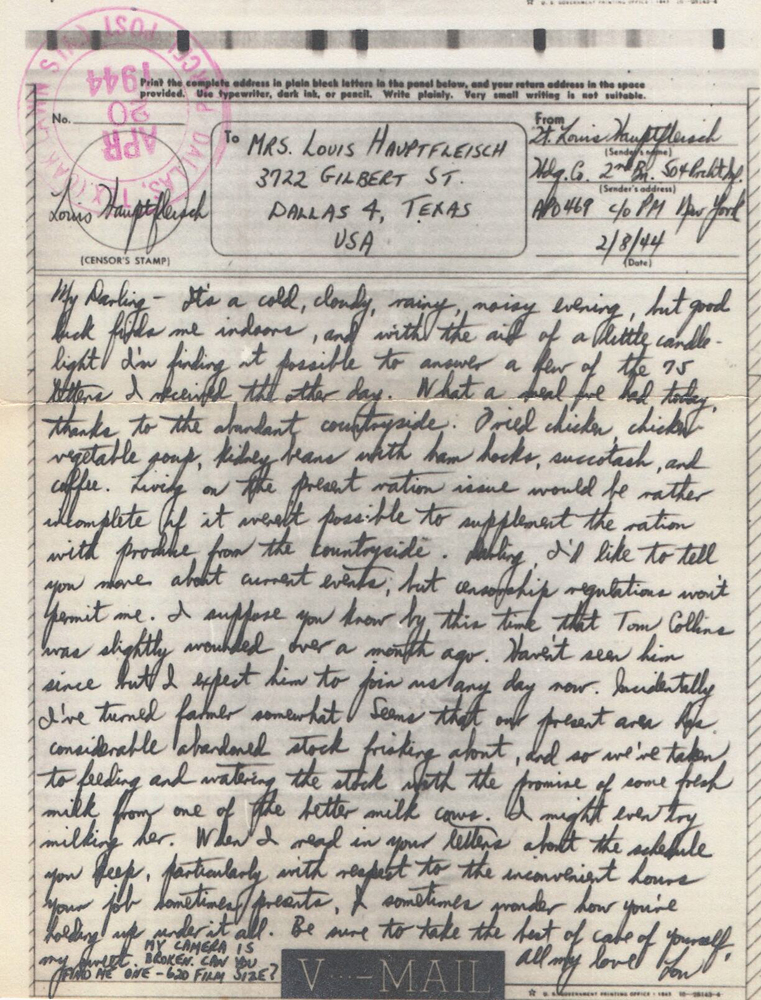 U. S. GOVERNMENT PRINTING OFFICE : 1943
DALLAS, TEX.
APR
20
1944
Print the complete address in plain block letters in the panel below, and your return address in the space
provided. Use typewriter, dark ink, or pencil. Write plainly. Very small writing is not suitable.
No.
Louis Hauptfleisch
(CENSOR'S STAMP)
To
MRS. LOUIS HAUPTFLEISCH
3722 GILBERT ST.
DALLAS 4, TEXAS
USA
From
Lt. Louis Hauptfleisch
(Sender's name)
Hdq. Co. 2nd Bn. 504 Prcht Inf.
(Sender's address)
APO 469 c/o PM New York
2/8/44
(Date)
My Darling - It's a cold, cloudy, rainy, noisy evening, but good
luck finds me indoors, and with the aid of a little candle-
light I'm finding it possible to answer a few of the 75
letters I received the other day. What a meal we had today,
thanks to the abundant countryside. Fried chicken, chicken
vegetable soup, kidney beans with ham hocks, succotash, and
coffee. Living on the present ration issue would be rather
incomplete if it weren't possible to supplement the ration
with produce from the countryside. Darling, I'd like to tell
you more about current events, but censorship regulations won't
permit me. I suppose you know by this time that Tom Collins
was slightly wounded over a month ago. Haven't seen him
since but I expect him to join us any day now. Incidentally
I've turned farmer somewhat. Seems that our present area has
considerable abandoned stock frisking about, and so we've taken
to feeding and watering the stock with the promise of some fresh
milk from one of the better milk cows. I might even try
milking her. When I read in your letters about the schedule
you keep, particularly with respect to the inconvenient hours
your job sometimes presents, I sometimes wonder how you're
holding up under it all. Be sure to take the best of care of yourself,
my sweet.
All my love Lou
MY CAMERA IS
BROKEN. CAN YOU
FIND ME ONE - 620 FILM SIZE?
V···-MAIL
U. S. GOVERNMENT PRINTING OFFICE : 1943